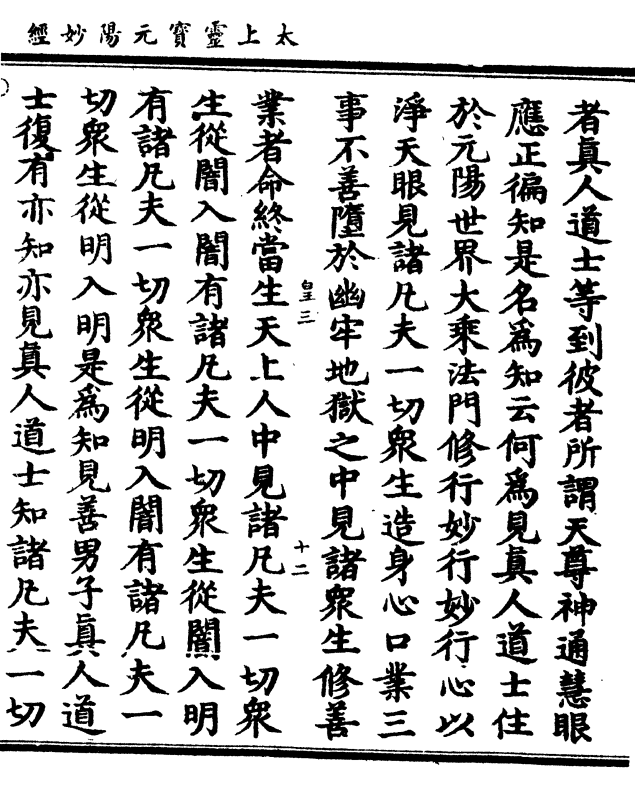 太上靈寶元陽妙經
者真人道士等到彼者所謂天尊神通慧眼
應正徧知是名為知云何為見真人道士住
於元陽世界大乘法門修行妙行妙行心以
淨天眼見諸凡夫一切眾生造身心口業三
事不善墮於幽牢地獄之中見諸眾生修善
皇三
十二
業者命終當生天上人中見諸凡夫一切眾
生從闇入闇有諸凡夫一切眾生從闇入明
有諸凡夫一切眾生從明入闇有諸凡夫一
切眾生從明入明是為知見善男子真人道
士復有亦知亦見真人道士知諸凡夫一切